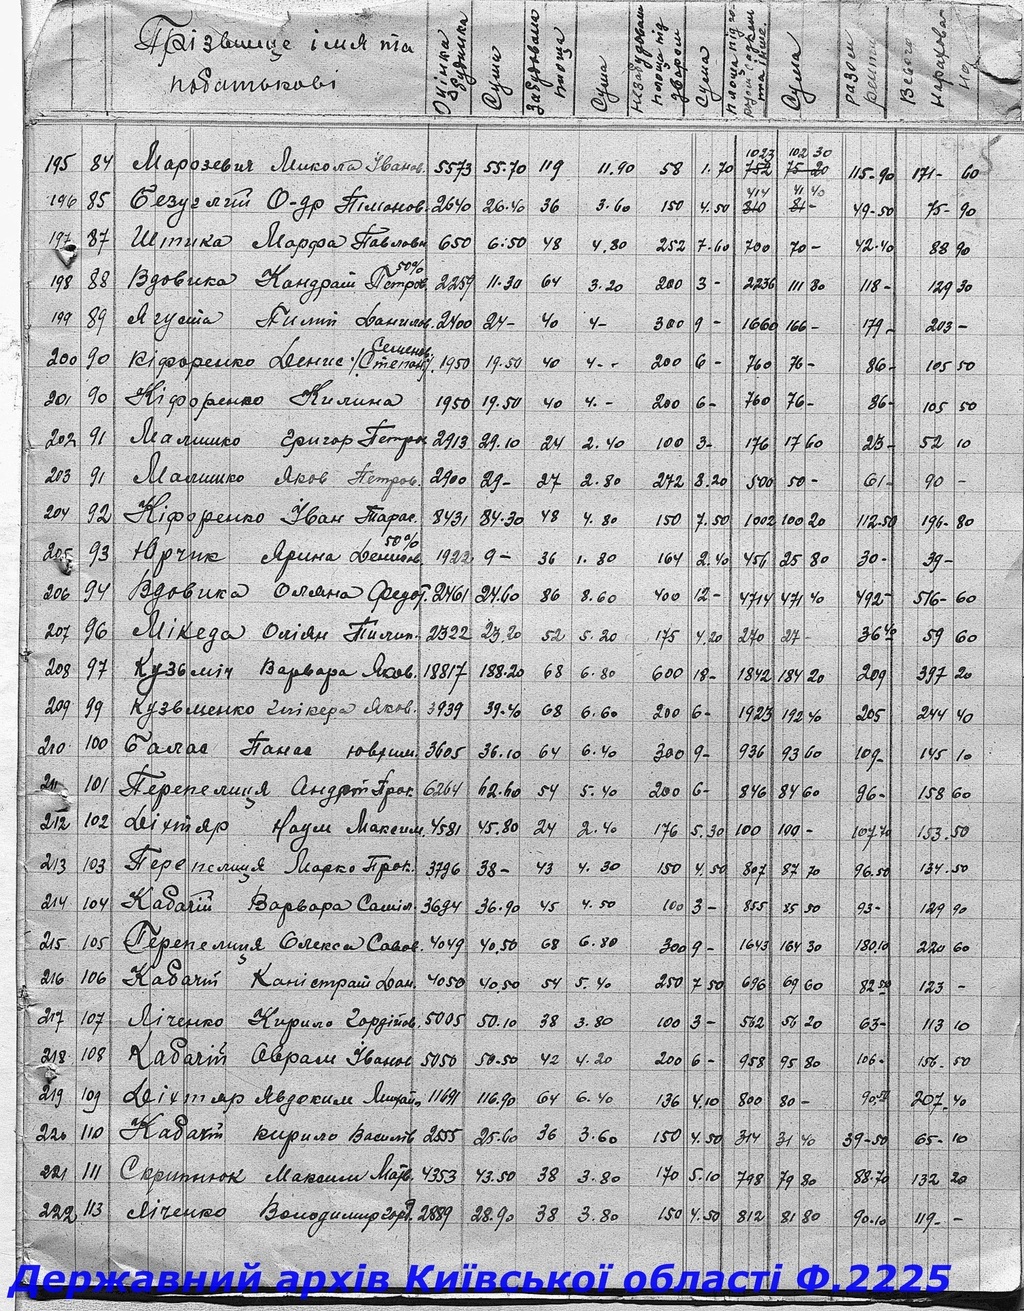 Прізвище імя та
побатькові
Оцінка будинка
Сума
Забудована площа
Сума
Незабудована площа під двором
Сума
площа під го-
родом садком та інше
Сума
разом ренти
Всього нарахова-
но
5
1023 102 30
195 84 Марозевич Микола Іванов. 5573 55.70 119 11.90 58 1.70 752 75-20 115-90 171- 60
414 41 40
196 85 Безуглий О-др Пімонов. 2640 26.40 36 3.60 150 4.50 810 81- 49-50 75- 90
197 87 Штика Марфа Павловн 650 6:50 48 4.80 252 7.60 700 70- 42.40 88 90
50%
198 88 Вдовика Кандрат Петров. 2259 11.30 64 3.20 200 3- 2236 111 80 118- 129 30
199 89 Ягуста Пилип Данилов. 2400 24- 40 4- 300 9- 1660 166- 179- 203-
Семенов.
200 90 Кіфоренко Денис /Степан/ 1950 19.50 40 4.- 200 6- 760 76- 86- 105 50
201 90 Кіфоренко Килина 1950 19.50 40 4.- 200 6- 760 76- 86- 105 50
202 91 Малишко Григор Петров 2913 29.10 24 2.40 100 3- 176 17 60 23- 52 10
203 91 Малишко Яков Петров. 2900 29- 27 2.80 272 8.20 500 50- 61- 90 -
204 92 Кіфоренко Іван Тарас. 8431 84.30 48 4.80 150 7.50 1002 100 20 112-50 196-80
50%
205 93 Юрчик Ярина Денисов. 1922 9- 36 1.80 164 2.40 456 25 80 30- 39-
206 94 Вдовика Оляна Федот. 2461 24.60 86 8.60 400 12- 4714 471 40 492- 516-60
207 96 Мікеда Оліян Пилип. 2322 23.20 52 5.20 175 4.20 270 27- 36 40 59 60
208 97 Кузьміч Варвара Яков. 18817 188.20 68 6.80 600 18- 1842 184 20 209 397 20
209 99 Кузьменко Глікера Яков. 3939 39.40 68 6.60 200 6- 1923 192 40 205 244 40
210 100 Балас Панас Юхрим. 3605 36.10 64 6.40 300 9- 936 93 60 109- 145 10
211 101 Перепелиця Андрій Прок. 6264 62.60 54 5.40 200 6- 846 84 60 96- 158 60
212 102 Діхтяр Наум Максим. 4581 45.80 24 2.40 176 5.30 100 100- 107.70 153.50
213 103 Перепелиця Марко Прок. 3796 38- 43 4.30 150 4.50 807 87 70 96.50 134.50
214 104 Кабачій Варвара Саміл. 3694 36.90 45 4.50 100 3- 855 85 50 93- 129 90
215 105 Перепелиця Олекса Савов. 4049 40.50 68 6.80 300 9- 1643 164 30 180.10 220 60
216 106 Кабачій Каністрат Дан. 4050 40.50 54 5.40 250 7 50 696 69 60 82 50 123 -
217 107 Ліченко Кирило Гордійов. 5005 50.10 38 3.80 100 3- 562 56 20 63- 113 10
218 108 Кабачій Оврам Іванов 5050 50.50 42 4.20 200 6- 958 95 80 106- 156.50
219 109 Діхтяр Явдоким Михайл. 11691 116.90 64 6.40 136 4.10 800 80- 90.50 207.40
220 110 Кабачій Кирило Василів 2555 25.60 36 3.60 150 4.50 314 31 40 39-50 65-10
221 111 Скрипнюк Максим Матв. 4353 43.50 38 3.80 170 5.10 798 79 80 88.70 132 20
222 113 Ліченко Володимир Горд. 2889 28.90 38 3.80 150 4.50 812 81 80 90.10 119.-
Державний архів Київської області Ф.2225